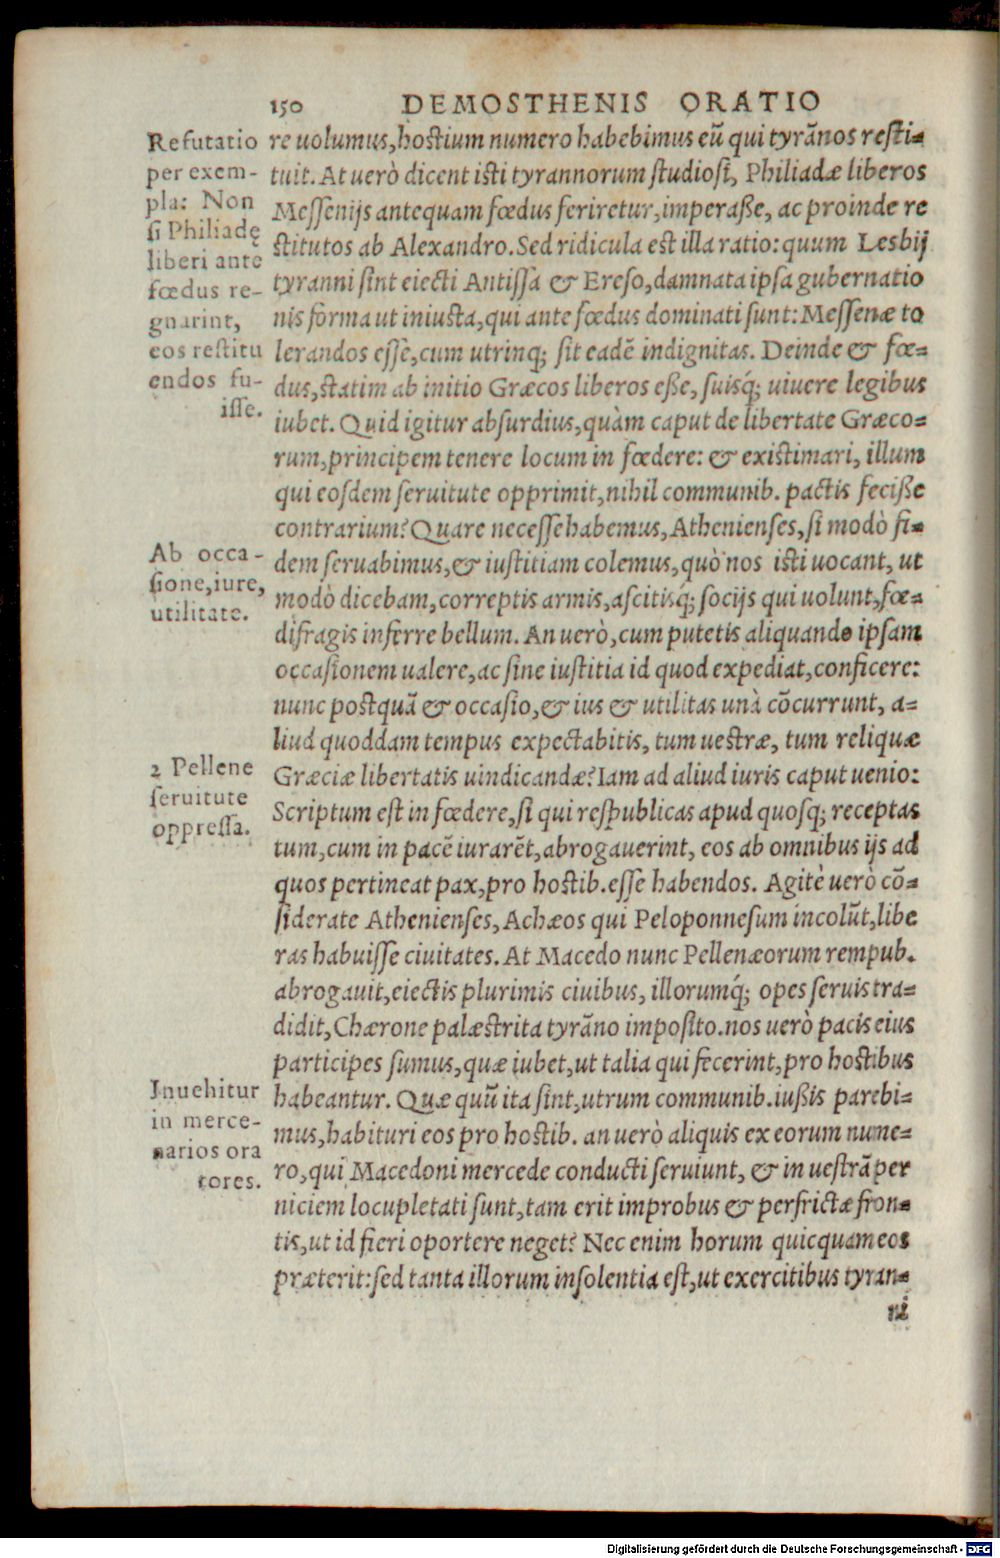 150 DEMOSTHENIS ORATIO
Refutatio
per exem-
pla: Non
ſi Philiadę
liberi ante
fœdus re-
gnarint,
eos reſtitu
endos fu-
iſſe.
re uolumus, hoſtium numero habebimus eũ qui tyrãnos reſti=
tuit. At uerò dicent iſti tyrannorum ſtudioſi, Philiadæ liberos
Meſſenijs antequam fœdus feriretur, imperaße, ac proinde re
ſtitutos ab Alexandro. Sed ridicula eſt illa ratio: quum Lesbij
tyranni ſint eiecti Antiſſa & Ereſo, damnata ipſa gubernatio
nis forma ut iniuſta, qui ante fœdus dominati ſunt: Meſſenæ to
lerandos eſſe, cum utrinq; ſit eadẽ indignitas. Deinde & fœ=
dus, ſtatim ab initio Græcos liberos eße, ſuisq́; uiuere legibus
iubet. Quid igitur abſurdius, quàm caput de libertate Græco=
rum, principem tenere locum in fœdere: & exiſtimari, illum
qui eoſdem ſeruitute opprimit, nihil communib. pactis feciße
contrarium? Quare neceſſe habemus, Athenienſes, ſi modò fi=
Ab occa-
ſione, iure,
utilitate.
dem ſeruabimus, & iuſtitiam colemus, quò nos iſti uocant, ut
modò dicebam, correptis armis, aſcitisq́; ſocijs qui uolunt, fœ=
difragis inferre bellum. An uerò, cum putetis aliquando ipſam
occaſionem ualere, ac ſine iuſtitia id quod expediat, conficere:
nunc poſtquã & occaſio, & ius & utilitas unà cõcurrunt, a=
liud quoddam tempus expectabitis, tum ueſtræ, tum reliquæ
2 Pellene
ſeruitute
oppreſſa.
Græciæ libertatis uindicandæ? Iam ad aliud iuris caput uenio:
Scriptum eſt in fœdere, ſi qui reſpublicas apud quoſq; receptas
tum, cum in pacẽ iurarẽt, abrogauerint, eos ab omnibus ijs ad
quos pertineat pax, pro hoſtib. eſſe habendos. Agitè uerò cõ=
ſiderate Athenienſes, Achæos qui Peloponneſum incolũt, libe
ras habuiſſe ciuitates. At Macedo nunc Pellenæorum rempub.
abrogauit, eiectis plurimis ciuibus, illorumq́; opes ſeruis tra=
didit, Chærone palæſtrita tyrãno impoſito. nos uerò pacis eius
participes ſumus, quæ iubet, ut talia qui fecerint, pro hoſtibus
Inuehitur
in merce-
narios ora
tores.
habeantur. Quæ quũ ita ſint, utrum communib. iußis parebi=
mus, habituri eos pro hoſtib. an uerò aliquis ex eorum nume=
ro, qui Macedoni mercede conducti ſeruiunt, & in ueſtrã per
niciem locupletati ſunt, tam erit improbus & perfrictæ fron=
tis, ut id fieri oportere neget? Nec enim horum quicquam eos
præterit: ſed tanta illorum inſolentia eſt, ut exercitibus tyran=
ni
Digitalisierung gefördert durch die Deutsche Forschungsgemeinschaft - DFG